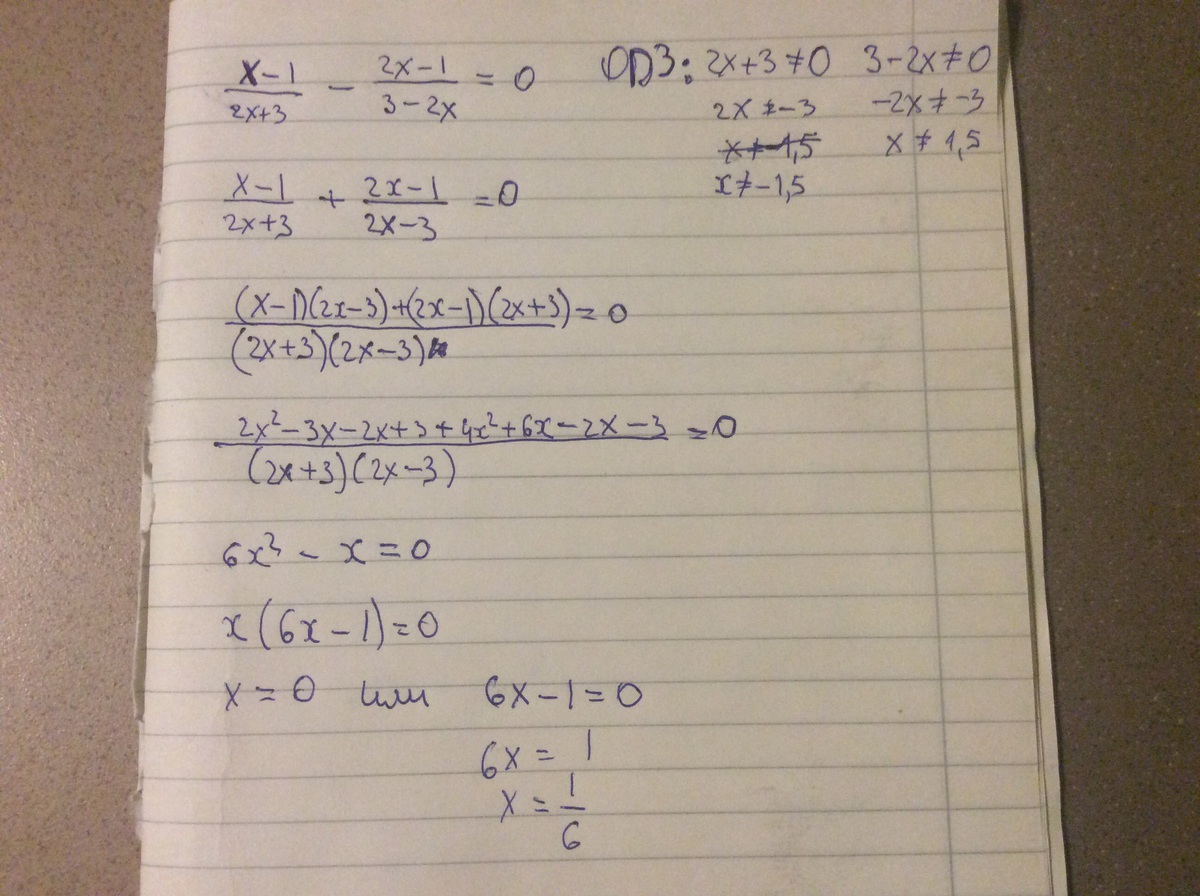 x-1/2x+3 - 2x-1/3-2x = 0
ОДЗ: 2x+3≠0 3-2x≠0
2x≠-3 -2x≠-3
x≠-1,5 x≠1,5
x≠-1,5
x-1/2x+3 + 2x-1/2x-3 = 0
(x-1)(2x-3)+(2x-1)(2x+3)/(2x+3)(2x-3) = 0
2x²-3x-2x+3+4x²+6x-2x-3/(2x+3)(2x-3) = 0
6x² - x = 0
x(6x-1)=0
x = 0 или 6x-1=0
6x = 1
x = 1/6